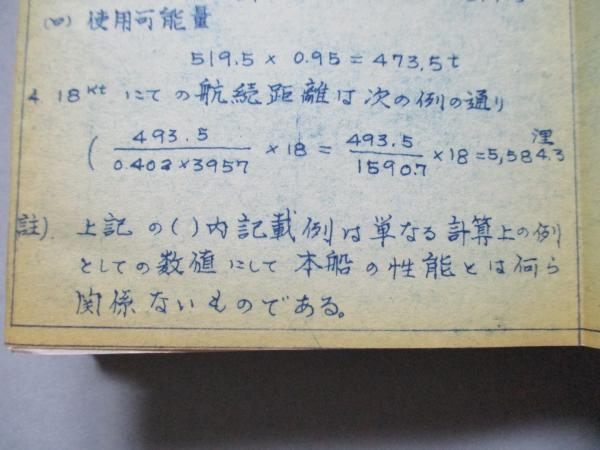 (四) 使用可能量
519.5 × 0.95 = 473.5t
4. 18Kt にての航続距離は次の例の通り
( 493.5 / 0.402×3957 ×18 = 493.5 / 1590.7 ×18 = 5,584.3 浬
註) 上記の( )内記載例は単なる計算上の例
としての数値にして本船の性能とは何ら
関係ないものである。